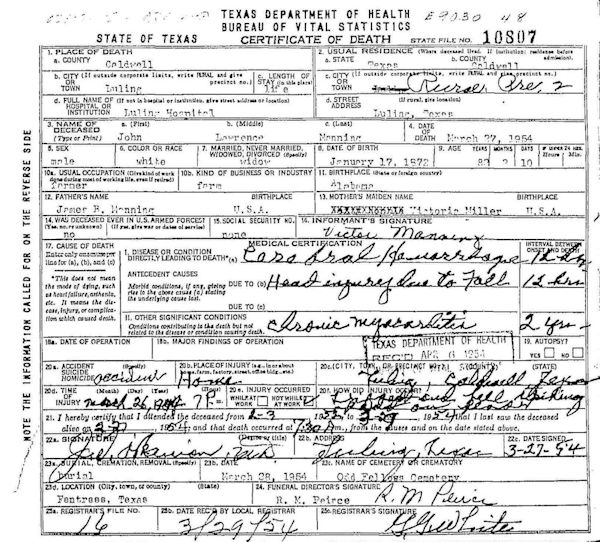 TEXAS DEPARTMENT OF HEALTH
BUREAU OF VITAL STATISTICS
E9030 48
STATE OF TEXAS
CERTIFICATE OF DEATH
STATE FILE NO. 10807
1. PLACE OF DEATH
a. COUNTY
Caldwell
2. USUAL RESIDENCE (Where deceased lived. If institution: residence before admission)
a. STATE
Texas
b. COUNTY
Caldwell
b. CITY (If outside corporate limits, write RURAL and give precinct no.)
OR
TOWN
Luling
c. LENGTH OF STAY (in this place)
life
c. CITY (If outside corporate limits, write RURAL and give precinct no.)
OR
TOWN
Rural Pre, 2
d. FULL NAME OF (If not in hospital or institution, give street address or location)
HOSPITAL OR
INSTITUTION
Luling Hospital
d. STREET ADDRESS (If rural, give location)
Luling, Texas
3. NAME OF DECEASED (Type or Print)
a. (First)
John
b. (Middle)
Lawrence
c. (Last)
Manning
4. DATE OF DEATH
March 27, 1954
5. SEX
male
6. COLOR OR RACE
white
7. MARRIED, NEVER MARRIED, WIDOWED, DIVORCED (Specify)
widow
8. DATE OF BIRTH
January 17, 1872
9. AGE
YEARS
MONTHS
DAYS
82 2 10
10a. USUAL OCCUPATION (Give kind of work done during most of working life, even if retired)
farmer
10b. KIND OF BUSINESS OR INDUSTRY
farm
11. BIRTHPLACE (State or foreign country)
Alabama
12. FATHER'S NAME
BIRTHPLACE
James B. Manning
U.S.A.
13. MOTHER'S MAIDEN NAME
BIRTHPLACE
Victoria Miller
U.S.A.
14. WAS DECEASED EVER IN U.S. ARMED FORCES?
(Yes, no, or unknown) (If yes, give war or dates of service)
no
15. SOCIAL SECURITY NO.
none
16. INFORMANT'S SIGNATURE
Victor Manning
17. CAUSE OF DEATH
Enter only one cause per line for (a), (b), and (c)
MEDICAL CERTIFICATION
INTERVAL BETWEEN ONSET AND DEATH
I. DISEASE OR CONDITION
DIRECTLY LEADING TO DEATH* (a)
Hemorrhage
12 hrs
*This does not mean the mode of dying, such as heart failure, asthenia, etc. It means the disease, injury, or complication which caused death.
ANTECEDENT CAUSES
Morbid conditions, if any, giving rise to the above cause (a) stating the underlying cause last.
DUE TO (b)
Head injury due to Fall
12 hrs
DUE TO (c)
II. OTHER SIGNIFICANT CONDITIONS
Conditions contributing to the death but not related to the disease or condition causing death.
Chronic Myocarditis
2 yrs
18a. DATE OF OPERATION
18b. MAJOR FINDINGS OF OPERATION
TEXAS DEPARTMENT OF HEALTH
REC'D APR 6 1954
19. AUTOPSY?
YES NO
20a. ACCIDENT
SUICIDE
HOMICIDE
Accident
20b. PLACE OF INJURY (e.g., in or about home, farm, factory, street, office bldg., etc.)
Home
20c. (CITY, TOWN, OR PRECINCT NO.)
Luling Caldwell Texas
20d. TIME OF INJURY
March 26, 1954
20e. INJURY OCCURRED
WHILE AT WORK
NOT WHILE AT WORK
20f. HOW DID INJURY OCCUR?
21. I hereby certify that I attended the deceased from
that I last saw the deceased
alive on
and that death occurred at
from the causes and on the date stated above.
22a. SIGNATURE
(Degree or title)
22b. ADDRESS
Luling, Texas
22c. DATE SIGNED
3-27-54
23a. BURIAL, CREMATION, REMOVAL (Specify)
burial
23b. DATE
March 28, 1954
23c. NAME OF CEMETERY OR CREMATORY
Odd Fellows Cemetery
23d. LOCATION (City, town, or county) (State)
Fentress, Texas
24. FUNERAL DIRECTOR'S SIGNATURE
R. M. Peirce
R M Peirce
25a. REGISTRAR'S FILE NO.
16
25b. DATE REC'D BY LOCAL REGISTRAR
3/29/54
25c. REGISTRAR'S SIGNATURE
NOTE THE INFORMATION CALLED FOR ON THE REVERSE SIDE